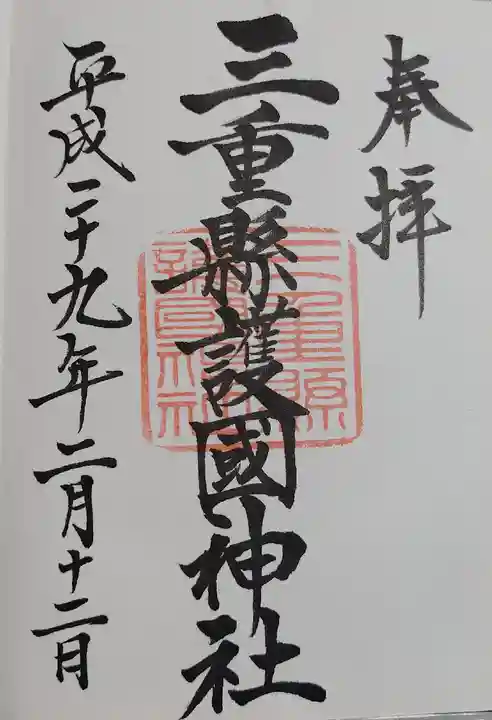 奉拝
三重縣護國神社
三重縣護國神社
平成二十九年二月十二日